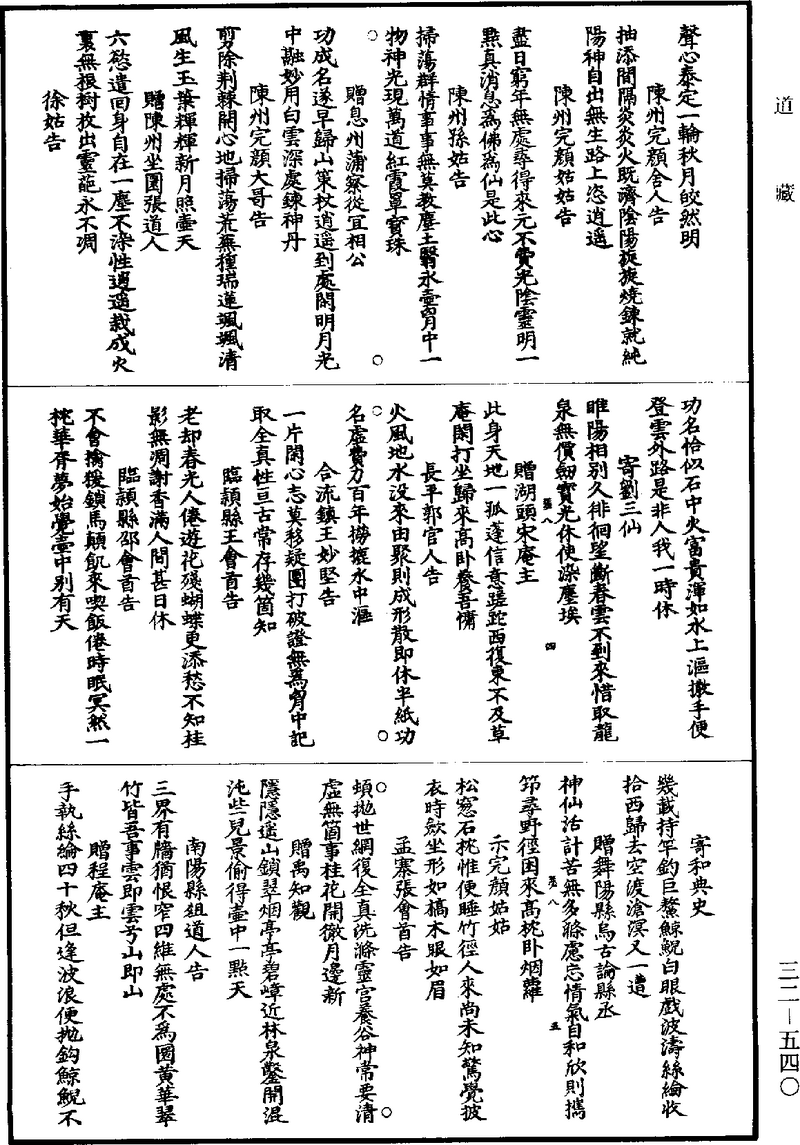 道藏
聲心泰定一輪秋月皎然明
陳州完顏舍人告
抽添間隔炎炎火既濟陰陽旋旋燒鍊就純
陽神自出無生路上恣逍遥
陳州完顏姑姑告
盡日窮年無處尋得來元不費光陰靈明一
點真消息為佛為仙是此心
陳州孫姑告
掃蕩群情事事無莫教塵土翳氷壺胷中一
物神光現萬道紅霞罩寶珠
贈息州蒲察從宜相公
功成名遂早歸山策杖逍遥到處閑明月光
中融妙用白雲深處鍊神丹
陳州完顏大哥告
剪除荆棘開心地掃蕩荒蕪種瑞蓮颯颯清
風生玉葉輝輝新月照壺天
贈陳州坐圜張道人
六慾遣回身自在一塵不染性逍遥栽成火
裏無根樹放出靈葩永不凋
徐姑告
功名恰似石中火富貴渾如水上漚撒手便
登雲外路是非人我一時休
寄劉三仙
睢陽相別久徘徊望斷春雲不到來惜取龍
泉無價劒寶光休使染塵埃
贈湖頭宋庵主
此身天地一孤蓬信意蹉跎西復東不及草
庵閑打坐歸來高卧養吾慵
長平郭官人告
火風地水没來由聚則成形散即休半紙功
名虛費力百年撈摝水中漚
合流鎮王妙堅告
一片閑心志莫移疑團打破證無為胷中記
取全真性亘古常存幾箇知
臨頴縣王會首告
老却春光人倦遊花殘蝴蝶更添愁不知桂
影無凋謝香滿人間甚日休
臨頴縣邵會首告
不會擒猿鎖馬顛飢來喫飯倦時眠冥然一
枕華胥夢始覺壺中别有天
寄和典史
幾載持竿釣巨鰲鯨鯢白眼戲波濤絲綸收
拾西歸去空渡滄溟又一遭
贈舞陽縣烏古論縣丞
神仙活計苦無多滌慮忘情氣自和欣則攜
筇尋野徑困來高枕卧烟蘿
示完顏姑姑
松窓石枕惟便睡竹徑人來尚未知驚覺披
衣時歛坐形如槁木眼如眉
孟寨張會首告
頓拋世網復全真洗滌靈宫養谷神常要清
虛無箇事桂花開徹月邊新
贈禹知觀
隱隱遥山鎖翠烟亭亭碧嶂近林泉鑿開混
沌些兒景偷得壺中一點天
南陽縣組道人告
三界有牆猶恨窄四維無處不為圜黄華翠
竹皆吾事雲即雲兮山即山
贈程庵主
手執絲綸四十秋但逢波浪便拋鈎鯨鯢不
三二—五四〇